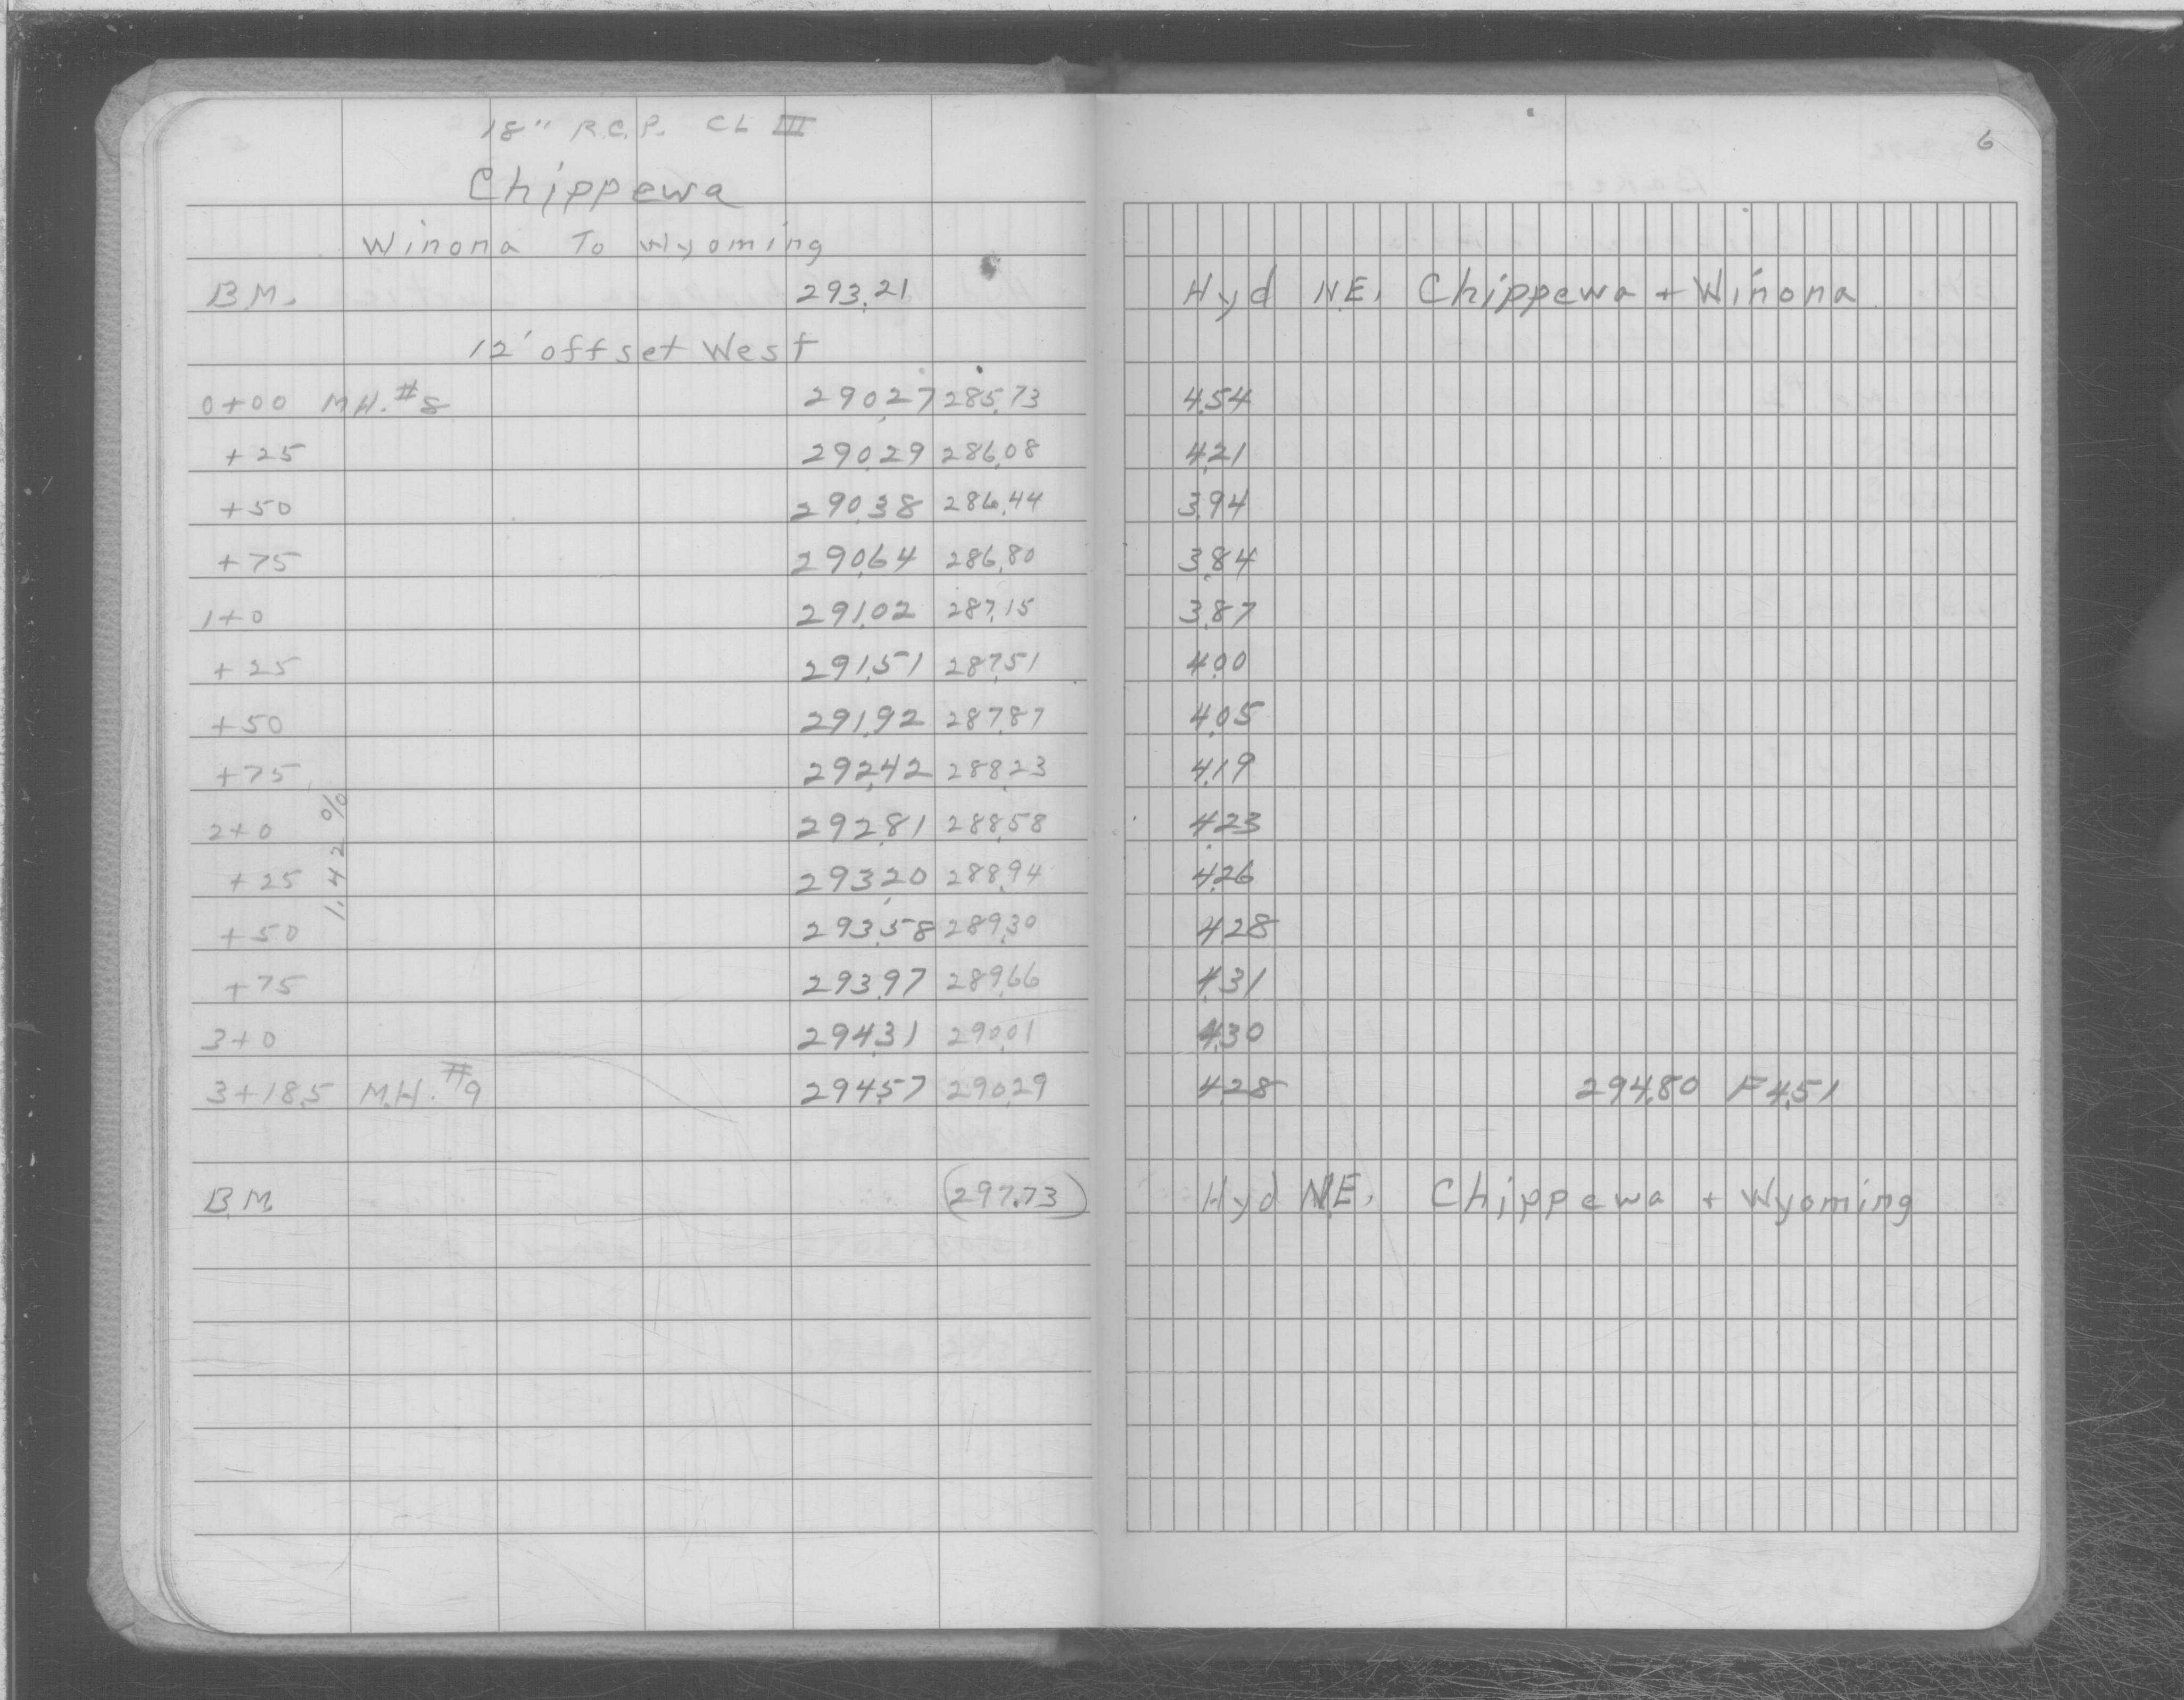 6
18" R.C.P. CL III
Chippewa
Winona To Wyoming
B.M. 293.21 Hyd N.E. Chippewa + Winona
12' offset West
0+00 M.H. #8 290.27 285.73 4.54
+25 290.29 286.08 4.21
+50 290.38 286.44 3.94
+75 290.64 286.80 3.84
1+0 291.02 287.15 3.87
+25 291.51 287.51 4.00
+50 291.92 287.87 4.05
+75 292.42 288.23 4.19
2+0 292.81 288.58 4.23
+25 293.20 288.94 4.26
+50 293.58 289.30 4.28
+75 293.97 289.66 4.31
1.42 %
3+0 294.31 290.01 4.30
3+18.5 M.H. #9 294.57 290.29 4.28 294.80 F 4.51
B.M. (297.73) Hyd N.E. Chippewa + Wyoming